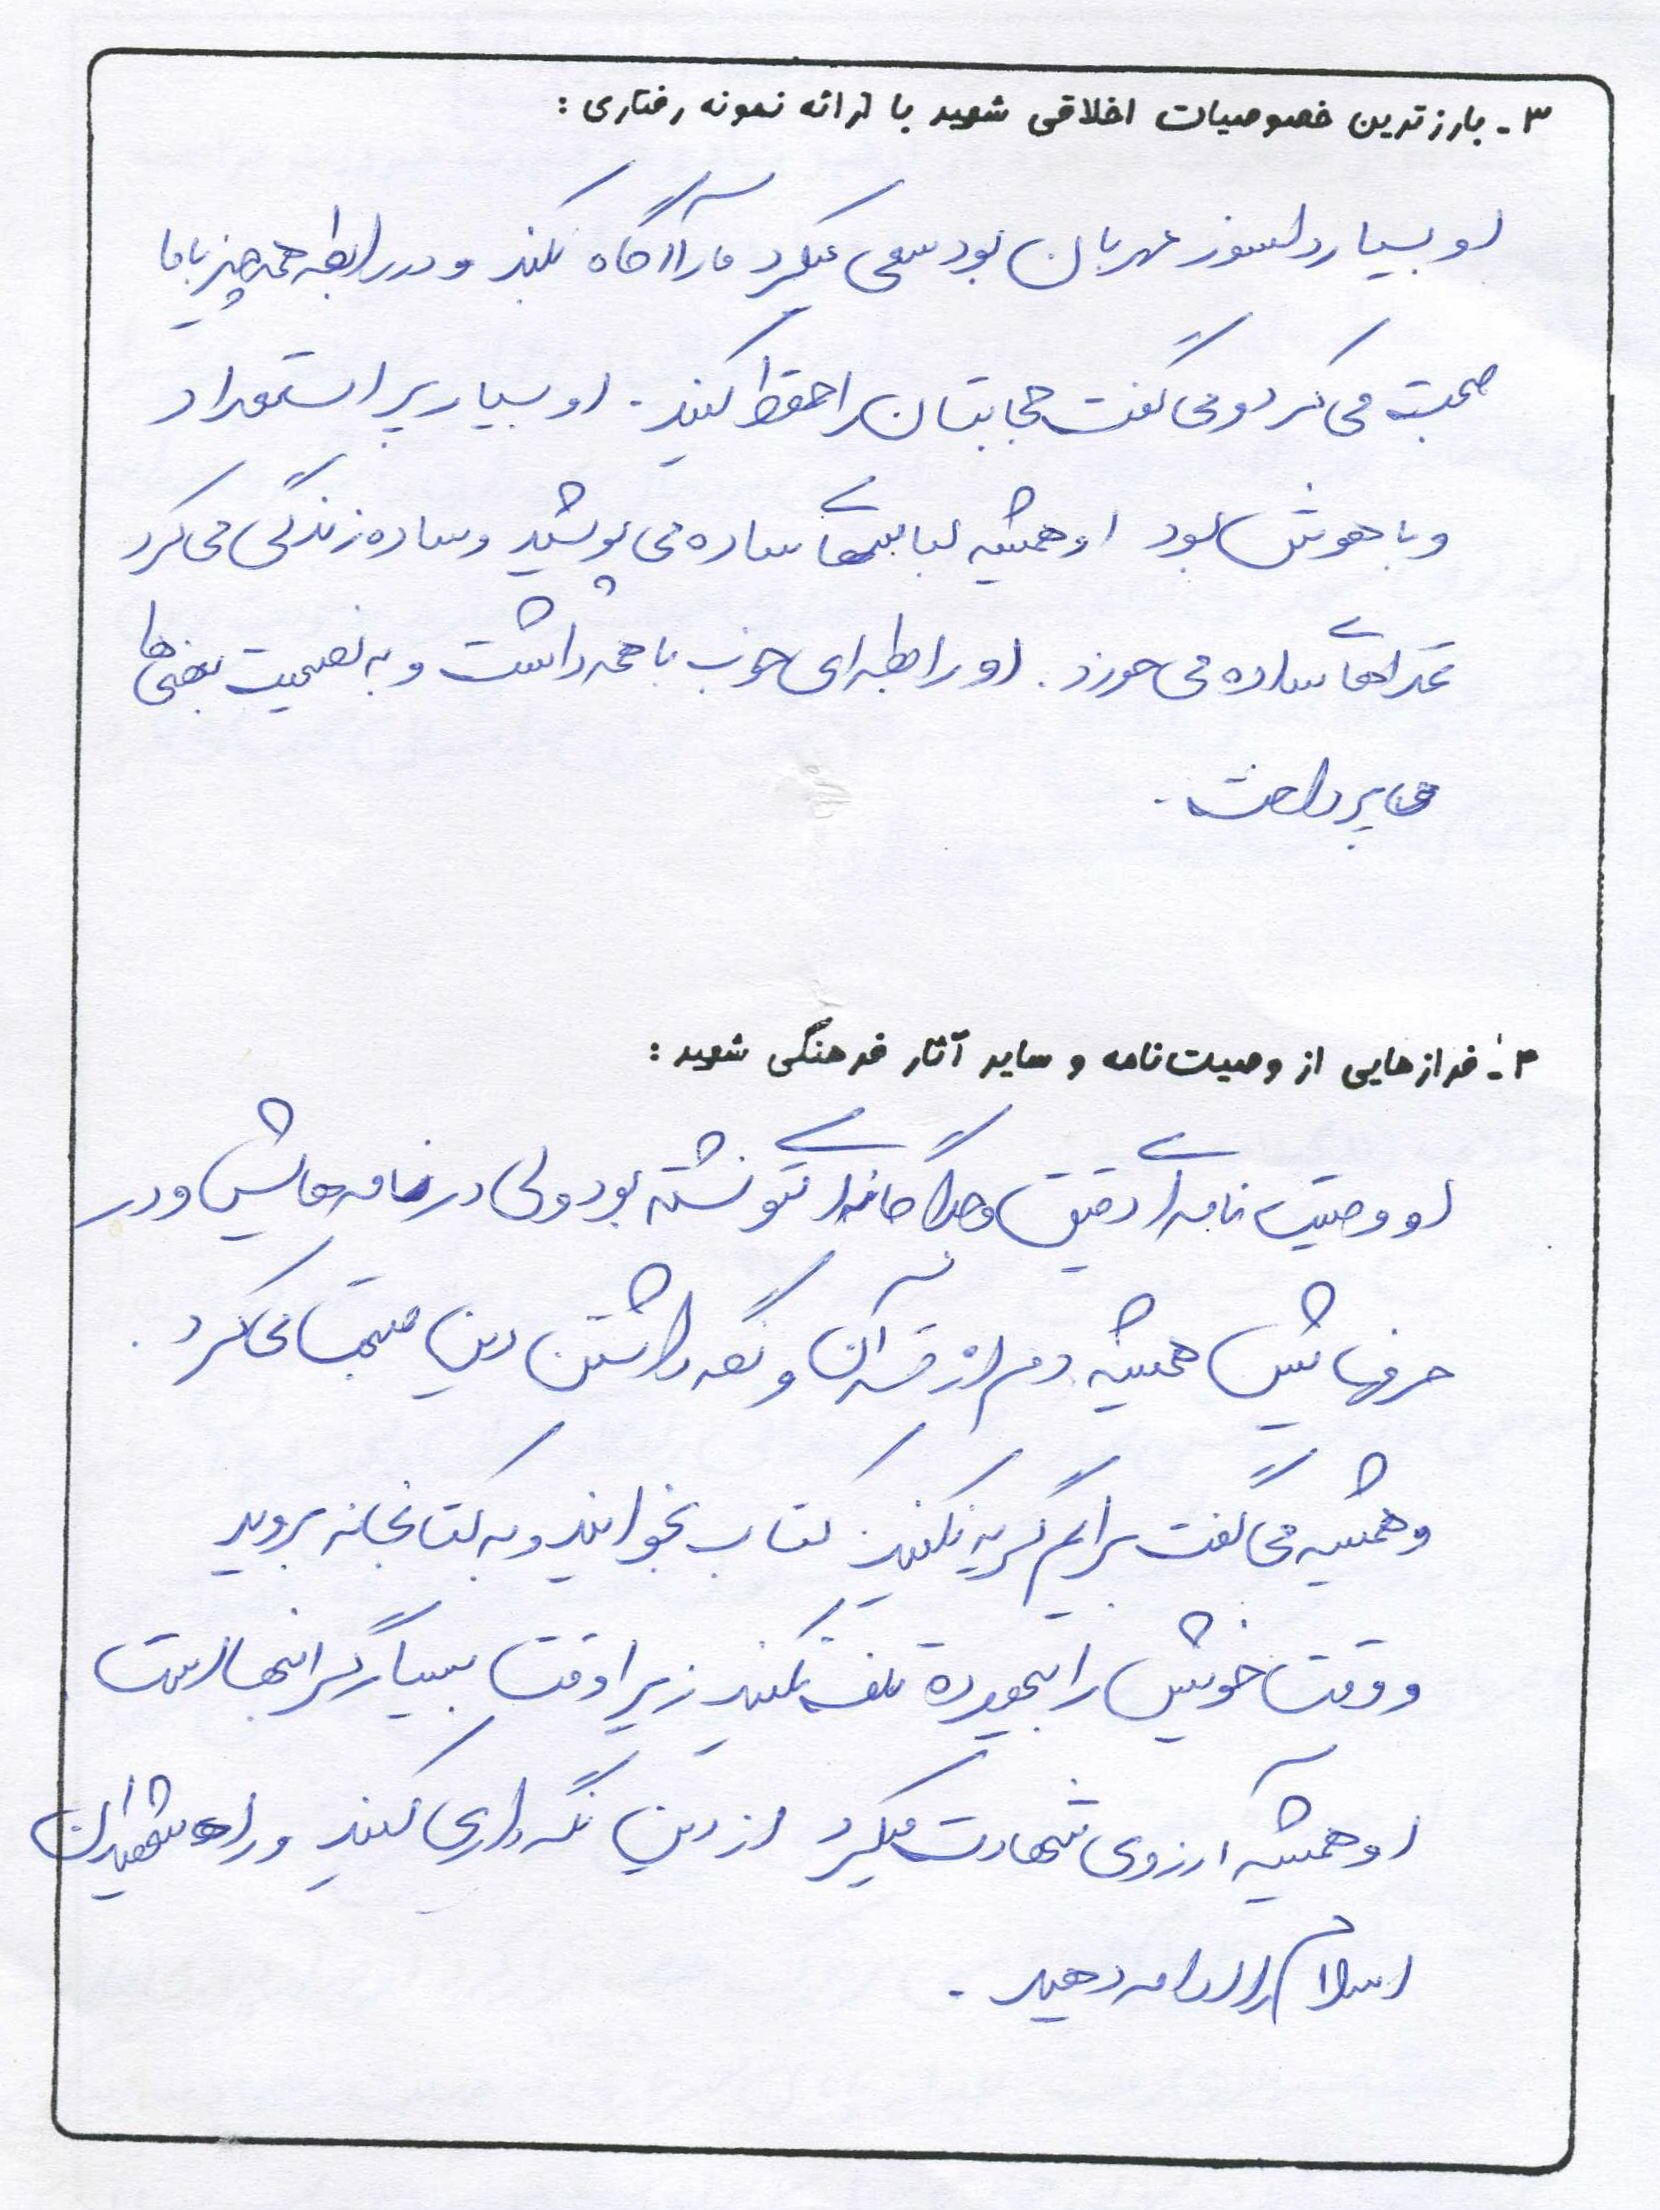 ۳- بارزترین خصوصیات اخلاقی شهید با ارائه نمونه رفتاری :
او بسیار دلسوز مهربان بود سعی میکرد ما را آگاه بکند و در رابطه همه چیز با ما
صحبت می کرد و می گفت حجابتان را حفظ کنید . او بسیار پر استعداد
و با هوش بود او همیشه لباسهای ساده می پوشید و ساده زندگی می کرد
غذاهای ساده می خورد . او رابطه ای خوب با همه داشت و به نصیحت بعضی ها
می پرداخت .
۴- فرازهایی از وصیت نامه و سایر آثار فرهنگی شهید :
او وصیت نامه ای دقیق و جداگانه ای ننوشته بود ولی در نامه هایش و در
حرفهایش همیشه دم از قرآن و نگه داشتن دین صحبت می کرد .
و همیشه می گفت برایم گریه نکنید . کتاب بخوانید و به کتابخانه بروید
و وقت خویش را بیهوده تلف نکنید زیرا وقت بسیار گرانبها است
او همیشه آرزوی شهادت میکرد از دین نگه داری کنید و راه شهیدان
اسلام را ادامه دهید .